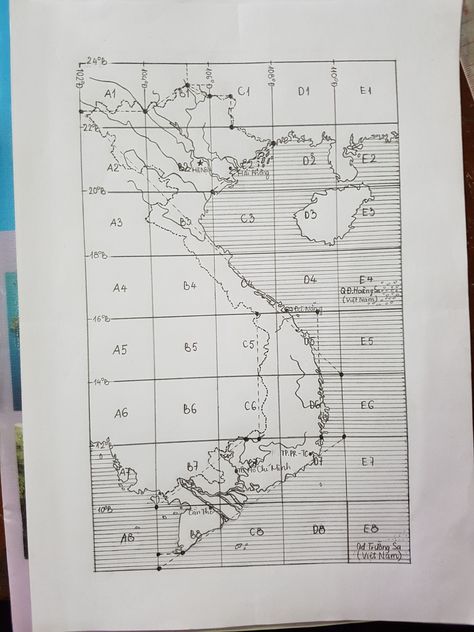 24°B
102°Đ 104°Đ 106°Đ 108°Đ 110°Đ
A1 B1 C1 D1 E1
22°B
A2 B2 C2 D2 E2
Hải Phòng
20°B
A3 B3 C3 D3 E3
18°B
A4 B4 C4 D4 E4
QĐ.Hoàng Sa
(Việt Nam)
Đà Nẵng
16°B
A5 B5 C5 D5 E5
14°B
A6 B6 C6 D6 E6
12°B
TP.PR-TC
A7 B7 D7 E7
Hồ Chí Minh
10°B
Cần Thơ
A8 B8 C8 D8 E8
Qđ Trường Sa
(Việt Nam)